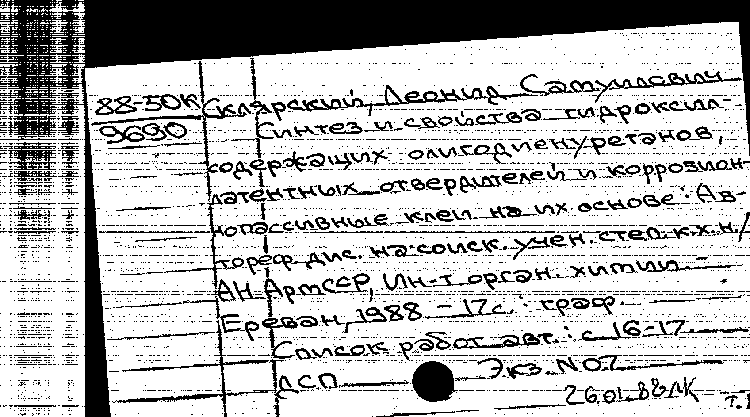 88-50К Склярский, Леонид Самуилович
9690 Синтез и свойства гидроксил-
содержащих олигодиенуретанов,
латентных отвердителей и коррозион-
нопассивные клеи на их основе: Ав-
тореф. дис. на соиск. учен. степ. к.х.н./
АН АрмССР, Ин-т орган. химии. -
Ереван, 1988. - 17с.: граф.
Список работ авт.: с. 16-17.
ДСП Экз. N07
26.01.88